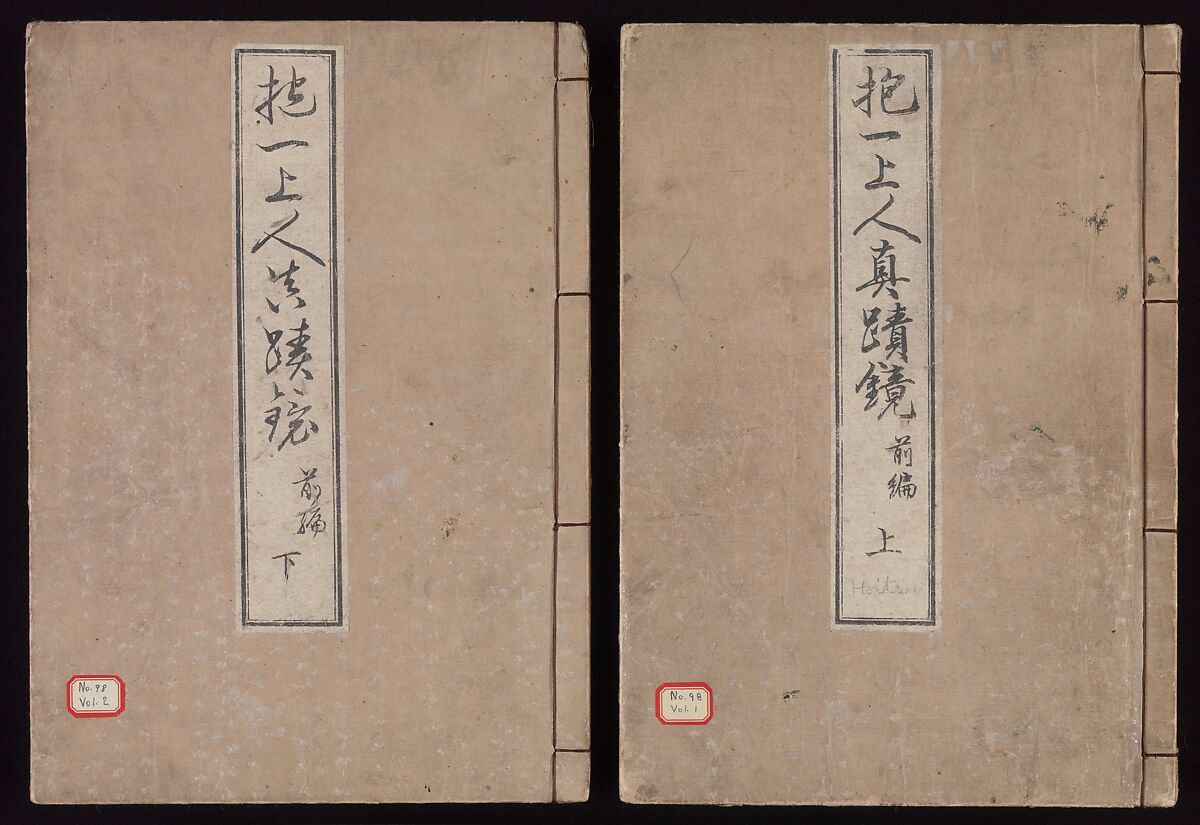 抱一上人真蹟鏡
前編
上
Hoitsu
No. 98
Vol. 1
抱一上人真蹟鏡
前編
下
No. 98
Vol. 2